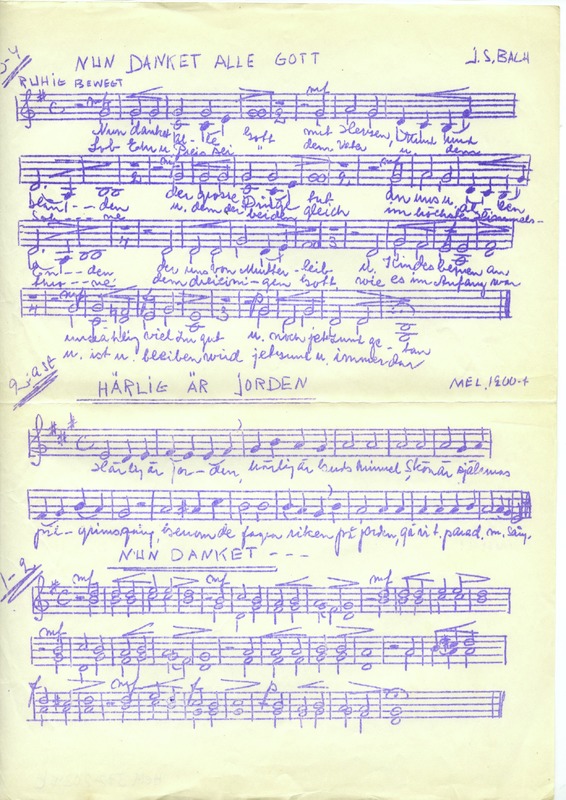 3-4
NUN DANKET ALLE GOTT
J.S. BACH
RUHIG BEWEGT
mf mf
Nun danket al - le Gott mit Herzen, Mund und
Lob Ehr u. Preis sei " dem Vater u. dem
mf
Hän - - den der grosse Dinge tut an uns u. al - len
Soh - - - ne u. dem der beiden gleich im höchsten Himmels-
En - - den der uns von Mutter - leib u. Kindesbeinen an
thro - - ne dem dreieini - gen Gott, wie es im Anfang war
mf p
unzählig viel zu gut u. noch jetzund ge - tan
u. ist u. bleiben wird jetzund u. immerdar
HÄRLIG ÄR JORDEN
MEL. 1200-t
Härlig är jor - den, härlig är Guds himmel, Skön är själarnas
pil - grimsgång, Genom de fagra riken på jorden, gå vi t. parad. m. Sång.
NUN DANKET - - -
1-2
mf mf mf
mf
f mf f p